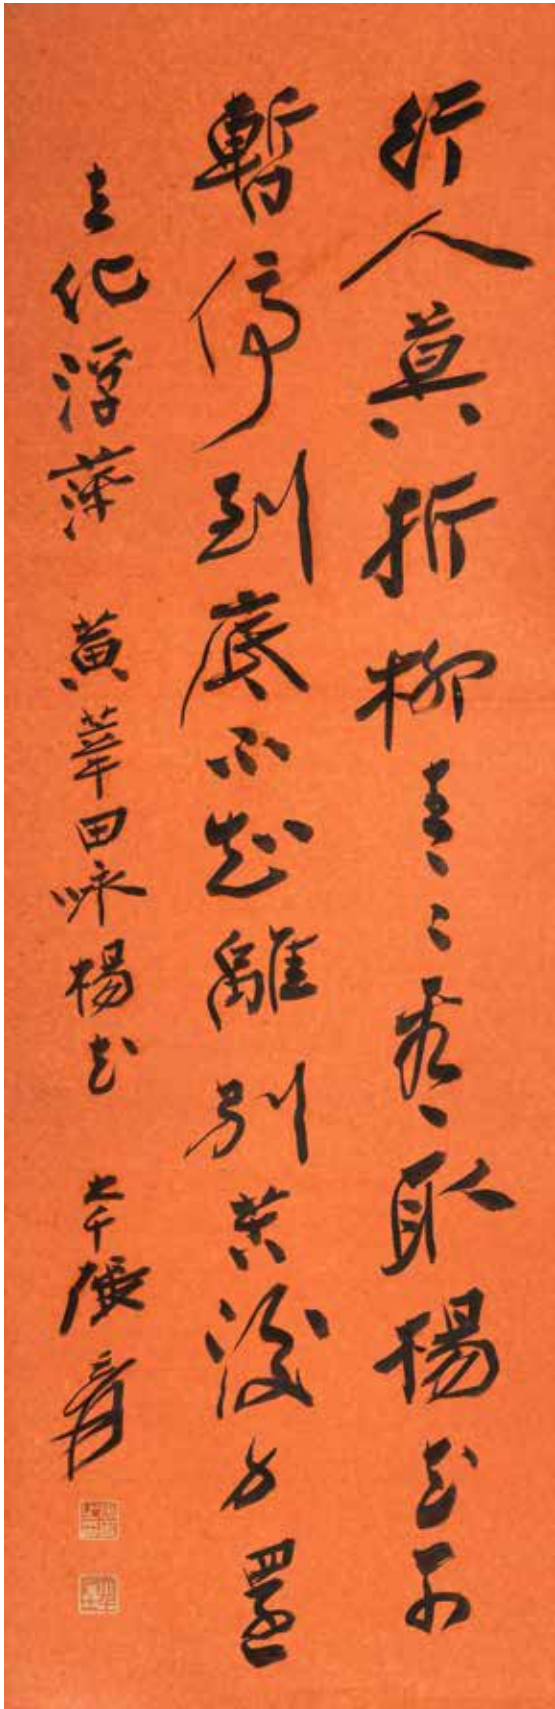 行人莫折柳青〻看取楊花可
暫停到底不知離別苦後身還
去化浮萍 黃莘田咏楊花 大千張爰